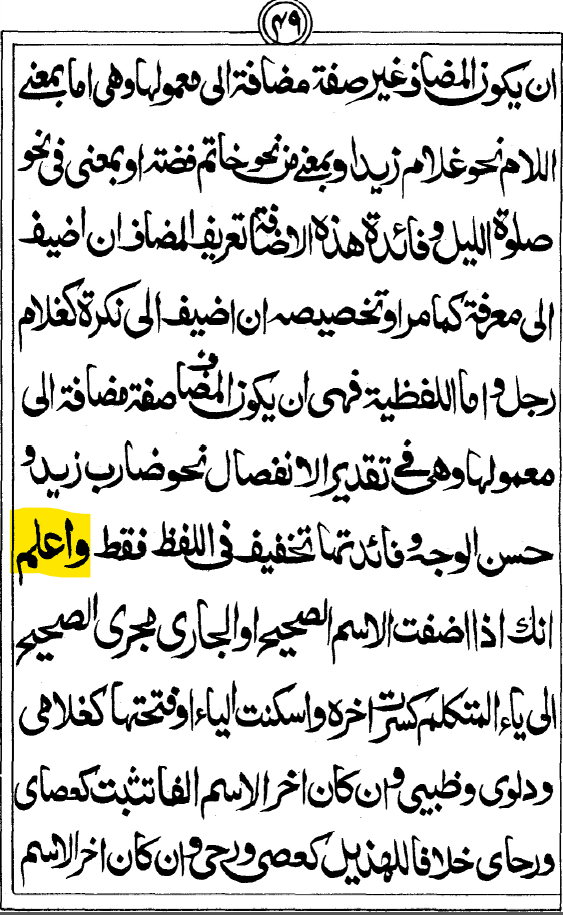 ٤٩
ان يكون المضاف غير صفة مضافة الى معمولها وهى اما بمعنے
اللام نحو غلام زيد او بمعنے من نحو خاتم فضة او بمعنى فى نحو
صلوة الليل و فائدة هذه الاضافة تعريف المضاف ان اضيف
الى معرفة كما مر او تخصيصه ان اضيف الى نكرة كغلام
رجل و اما اللفظية فهى ان يكون المضاف صفة مضافة الى
معمولها وهى فے تقدير الانفصال نحو ضارب زيد و
حسن الوجه و فائدتها تخفيف فى اللفظ فقط واعلم
انك اذا اضفت الاسم الصحيح او الجارى مجرى الصحيح
الى ياء المتكلم كسرت اخره واسكنت الياء او فتحتها كغلامى
ودلوى وظبيى وان كان اخر الاسم الفا تثبت كعصاى
ورحاى خلافا للهذيل كعصى ورحى وان كان اخر الاسم